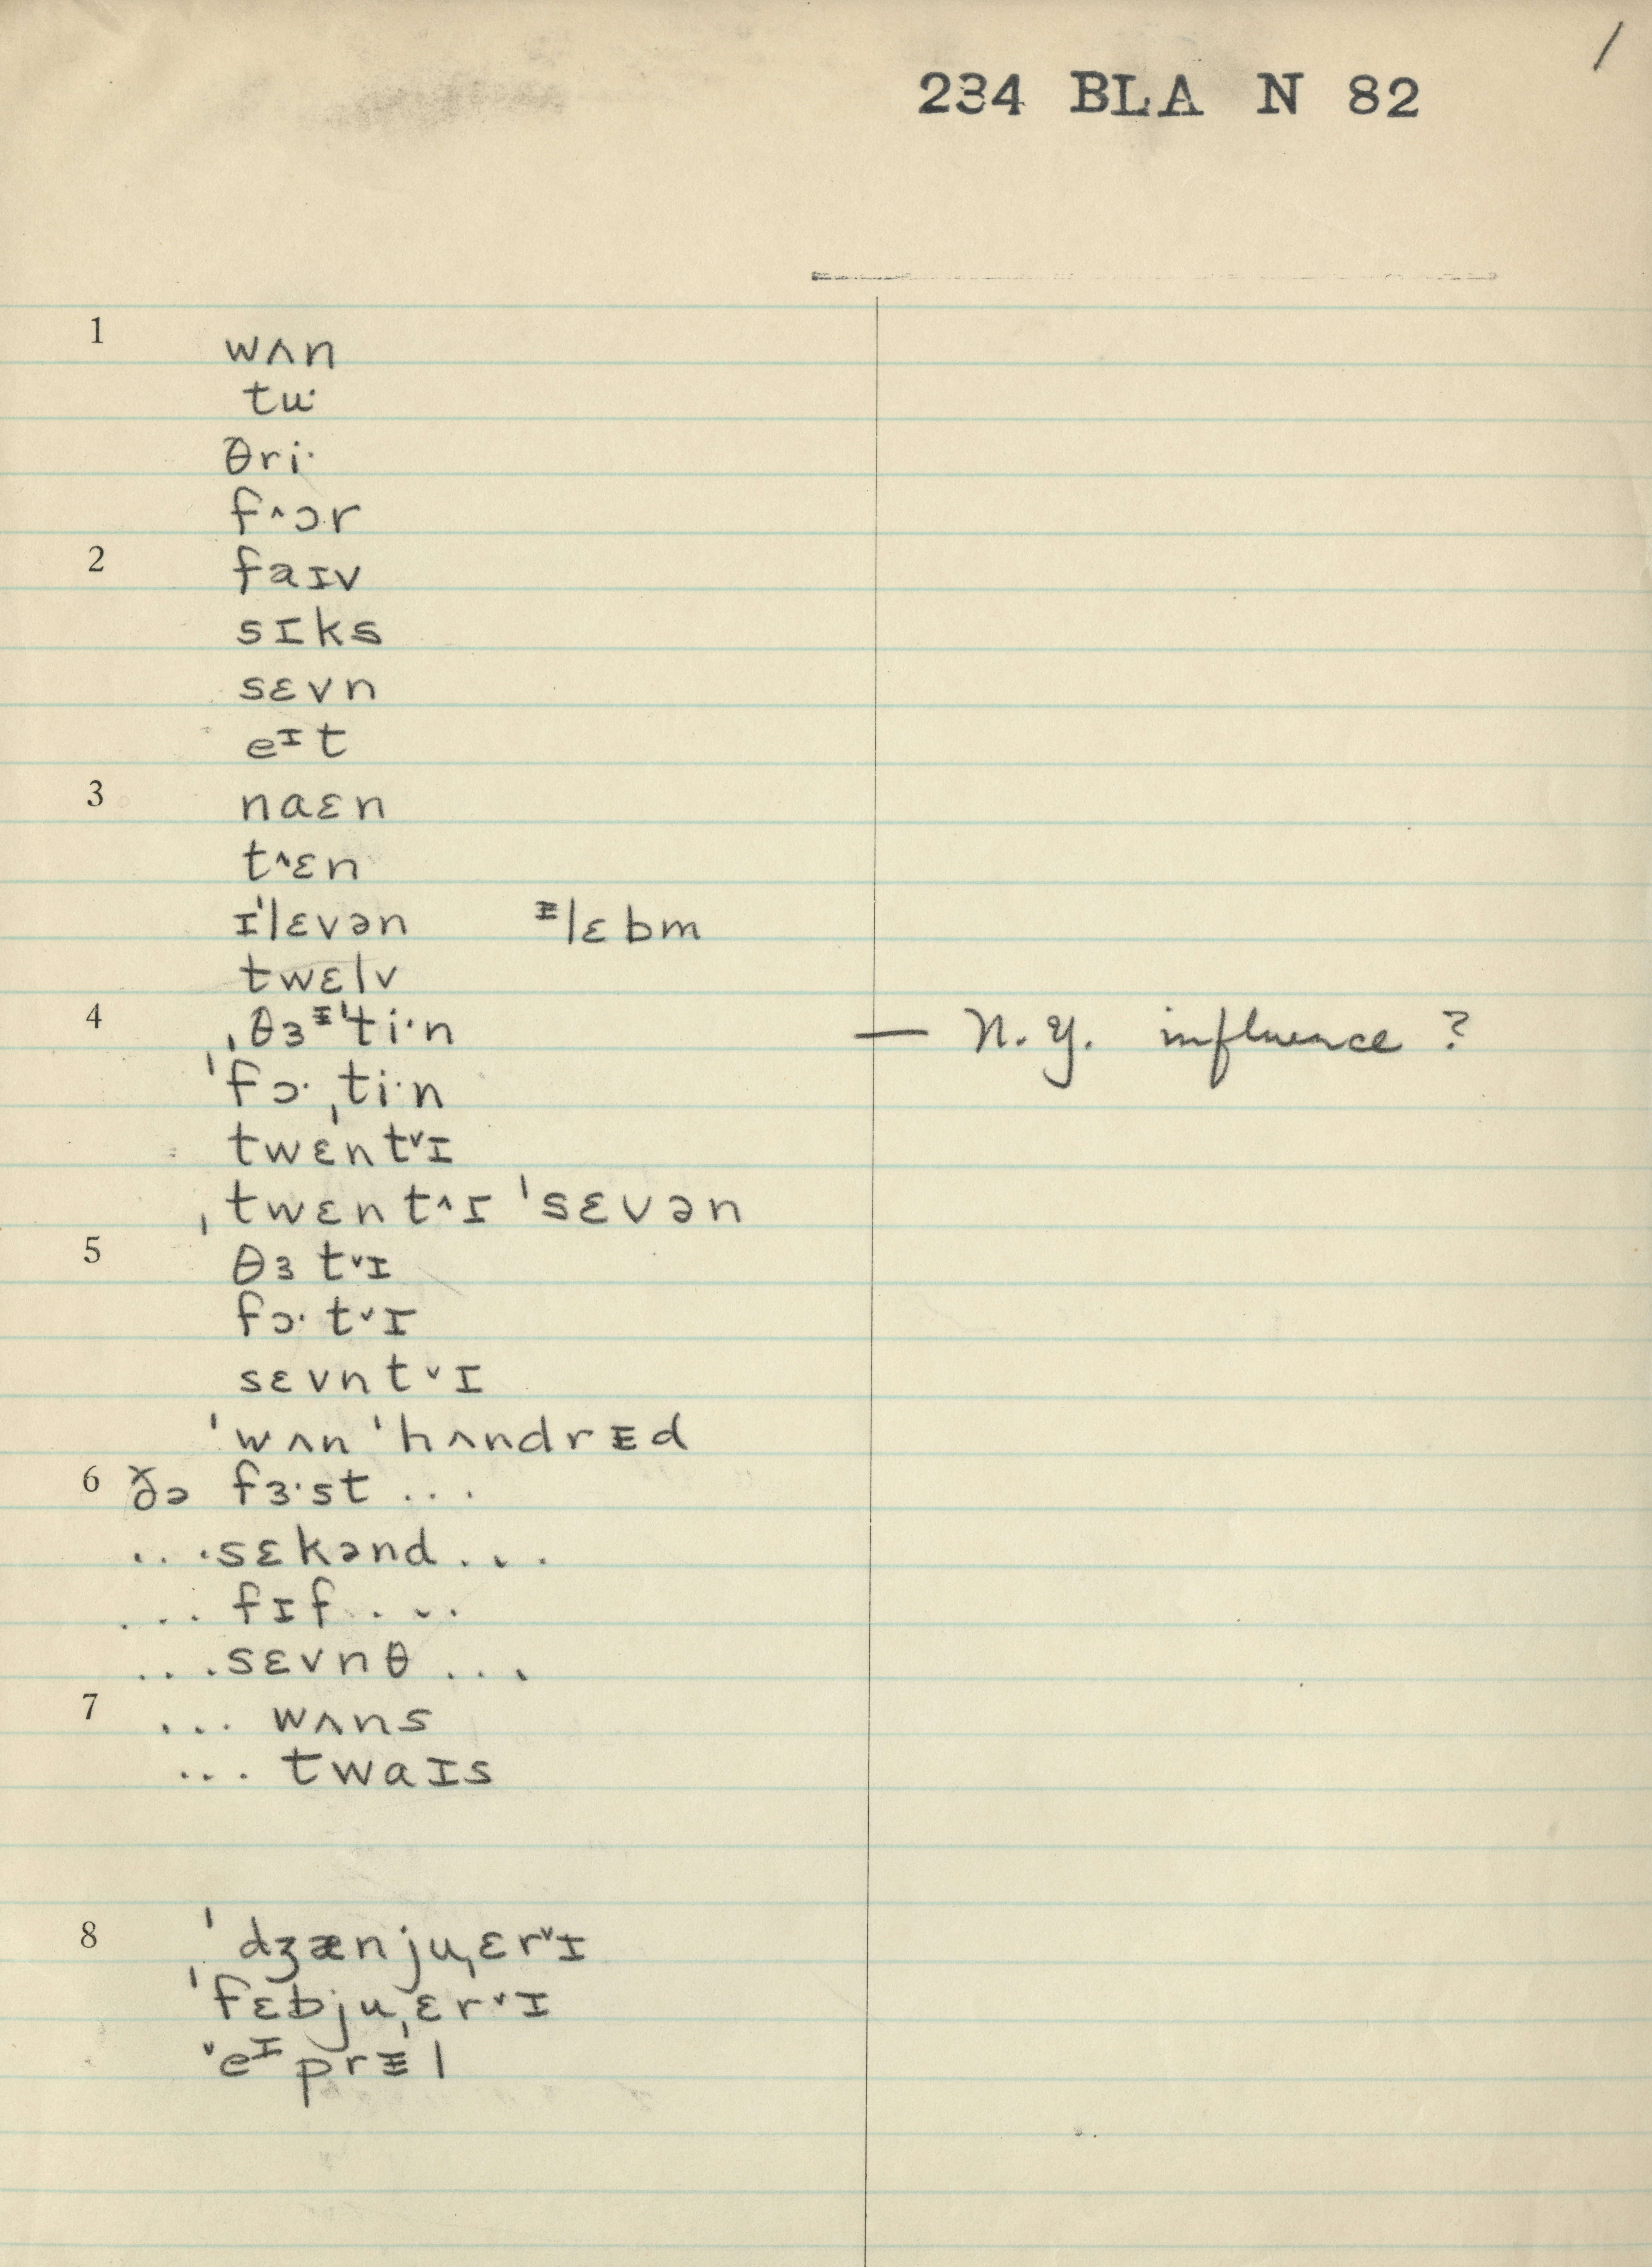 /
234 BLA N 82
1 wʌn
tu·
θri·
f˄ɔr
2 faɪv
sɪks
sɛvn
eᶦt
3 naɛn
t˄ɛn
ɪˈlɛvən ᵻlɛbm
twɛlv
4 ˌθɜᵻˈti·n — N.Y. influence ?
ˈfɔ·ˌti·n
twɛnt˅ɪ
ˌtwɛnt˄ɪ ˈsɛvən
5 θɜt˅ɪ
fɔ·t˅ɪ
sɛvnt˅ɪ
ˈwʌn ˈhʌndrᵻd
6 ðə fɜ·st ...
...sɛkənd...
... fɪf ....
...sɛvnθ ...
7 ... wʌns
... twaɪs
8 ˈdʒænjuˌɛr˅ɪ
ˈfɛbjuˌɛr˅ɪ
˅eᶦprᵻl